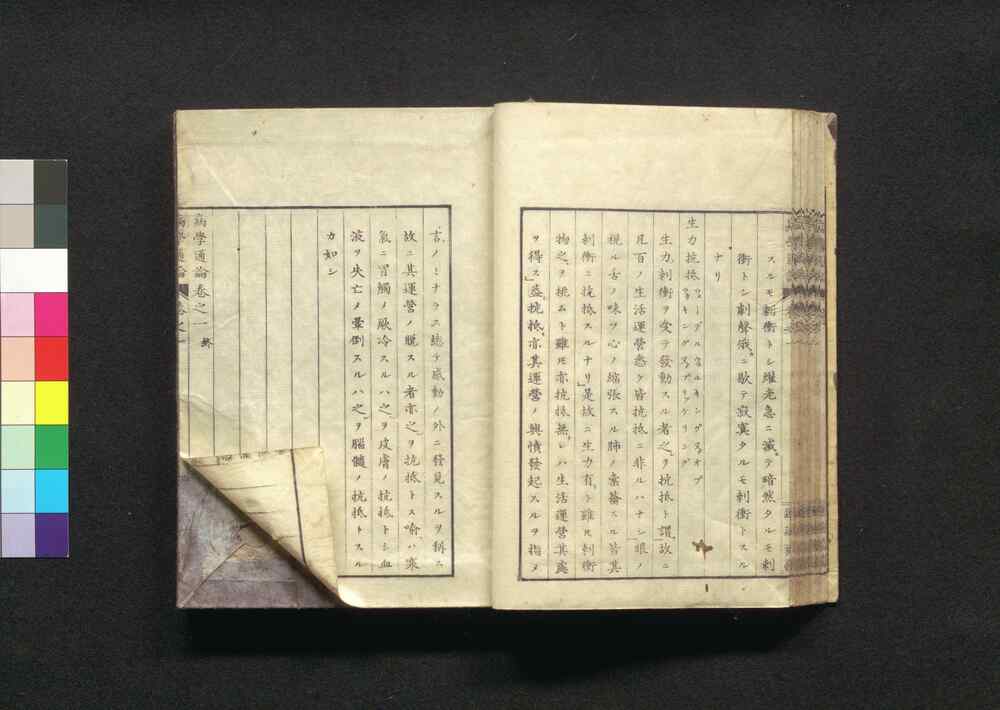 スルモ刺衝トシ燿光急ニ滅テ暗然タルモ刺
衝トシ劇聲俄ニ歇テ寂寞タルモ刺衝トスル
ナリ
生力抗抵
生力刺衝ヲ受テ發動スル者之ヲ抗抵ト謂故ニ
凡百ノ生活運營悉ク皆抗抵ニ非ルハナシ眼ノ
視ル舌ノ味フ心ノ縮張スル肺ノ スル皆其
刺衝ニ抗抵スルナリ是故ニ生力有ト雖モ刺衝
物之ヲ挑ムト雖モ亦抗抵無レハ生活運營其處
ヲ得ス蓋抗抵亦其運營ノ興憤發起スルヲ指メ
言ノミナラス總テ感動ノ外ニ發見スルヲ稱ス
故ニ其運營ノ脱スル者亦之ヲ抗抵トス喩ハ寒
氣ニ冒觸ノ厥冷スルハ之ヲ皮膚ノ抗抵トシ血
液ヲ失亡メ暈倒スルハ之ヲ腦髓ノ抗抵トスル
カ如シ
病學通論卷之一 終
病學通論